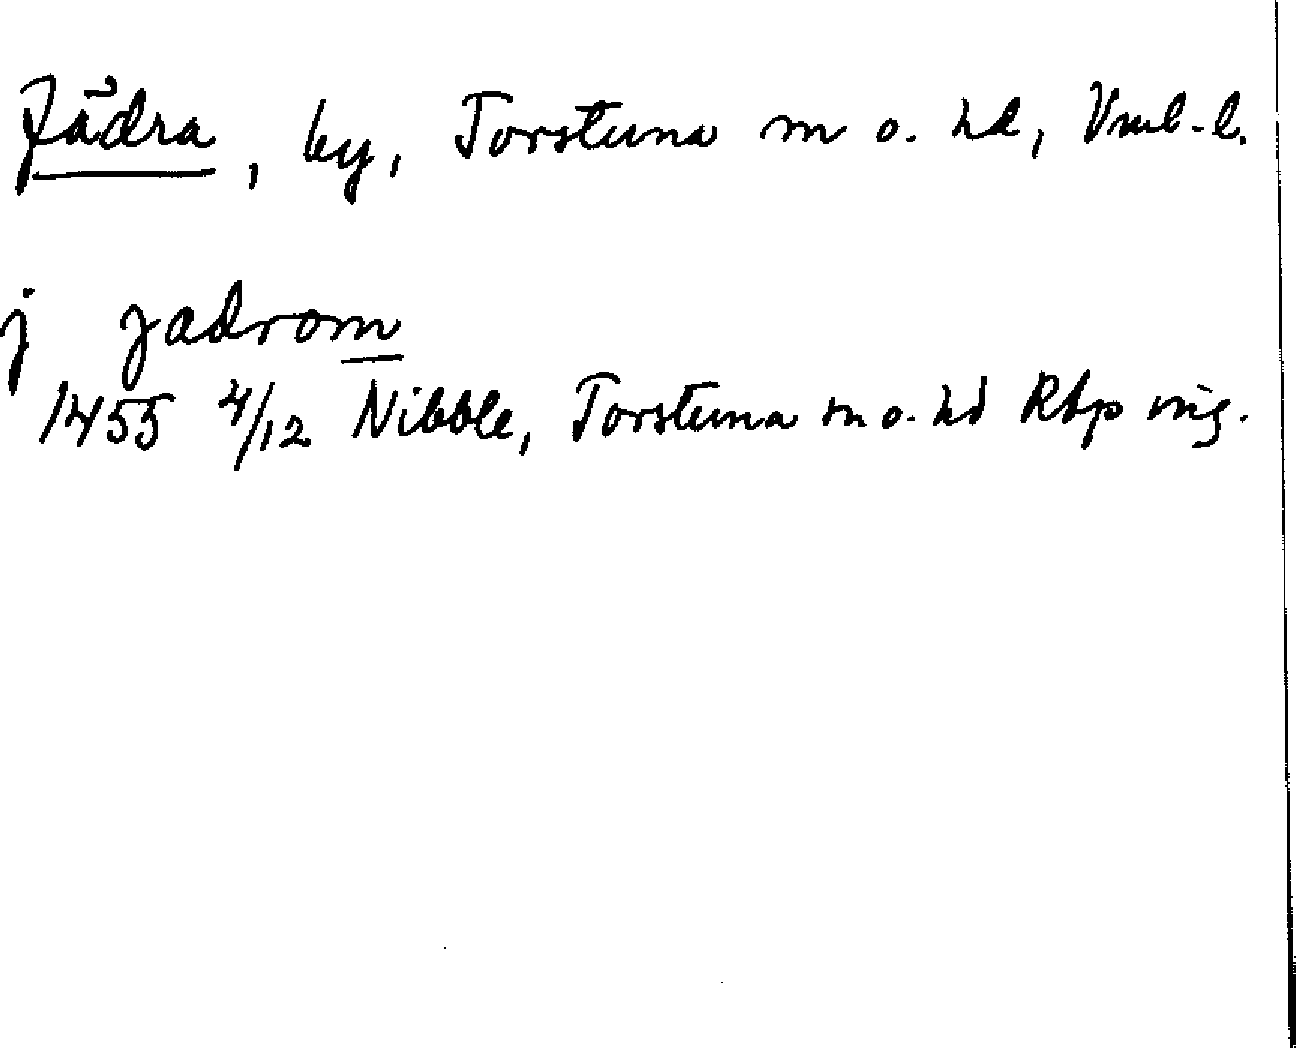 Jädra, by, Torstuna sn o. hd, Vml-l.
j jadrom
1455 4/12 Nibble, Torstuna sn o. hd Rhp orig.